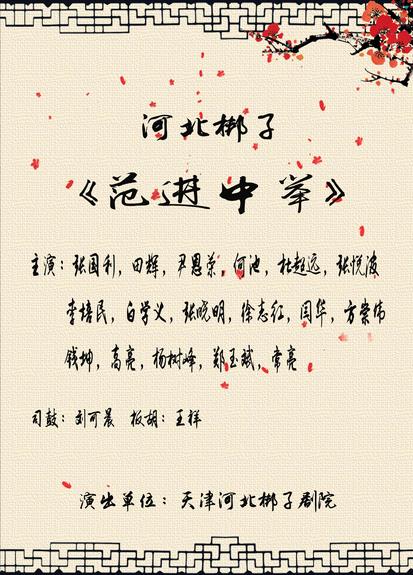 河北梆子
《范进中举》
主演：张国利，田辉，尹恩荣，何池，杜超远，张悦波
李培民，白学义，张晓明，徐志红，闫华，方崇伟
钱坤，高亮，杨树峰，郑玉斌，常亮
司鼓：刘可晨 板胡：王祥
演出单位：天津河北梆子剧院